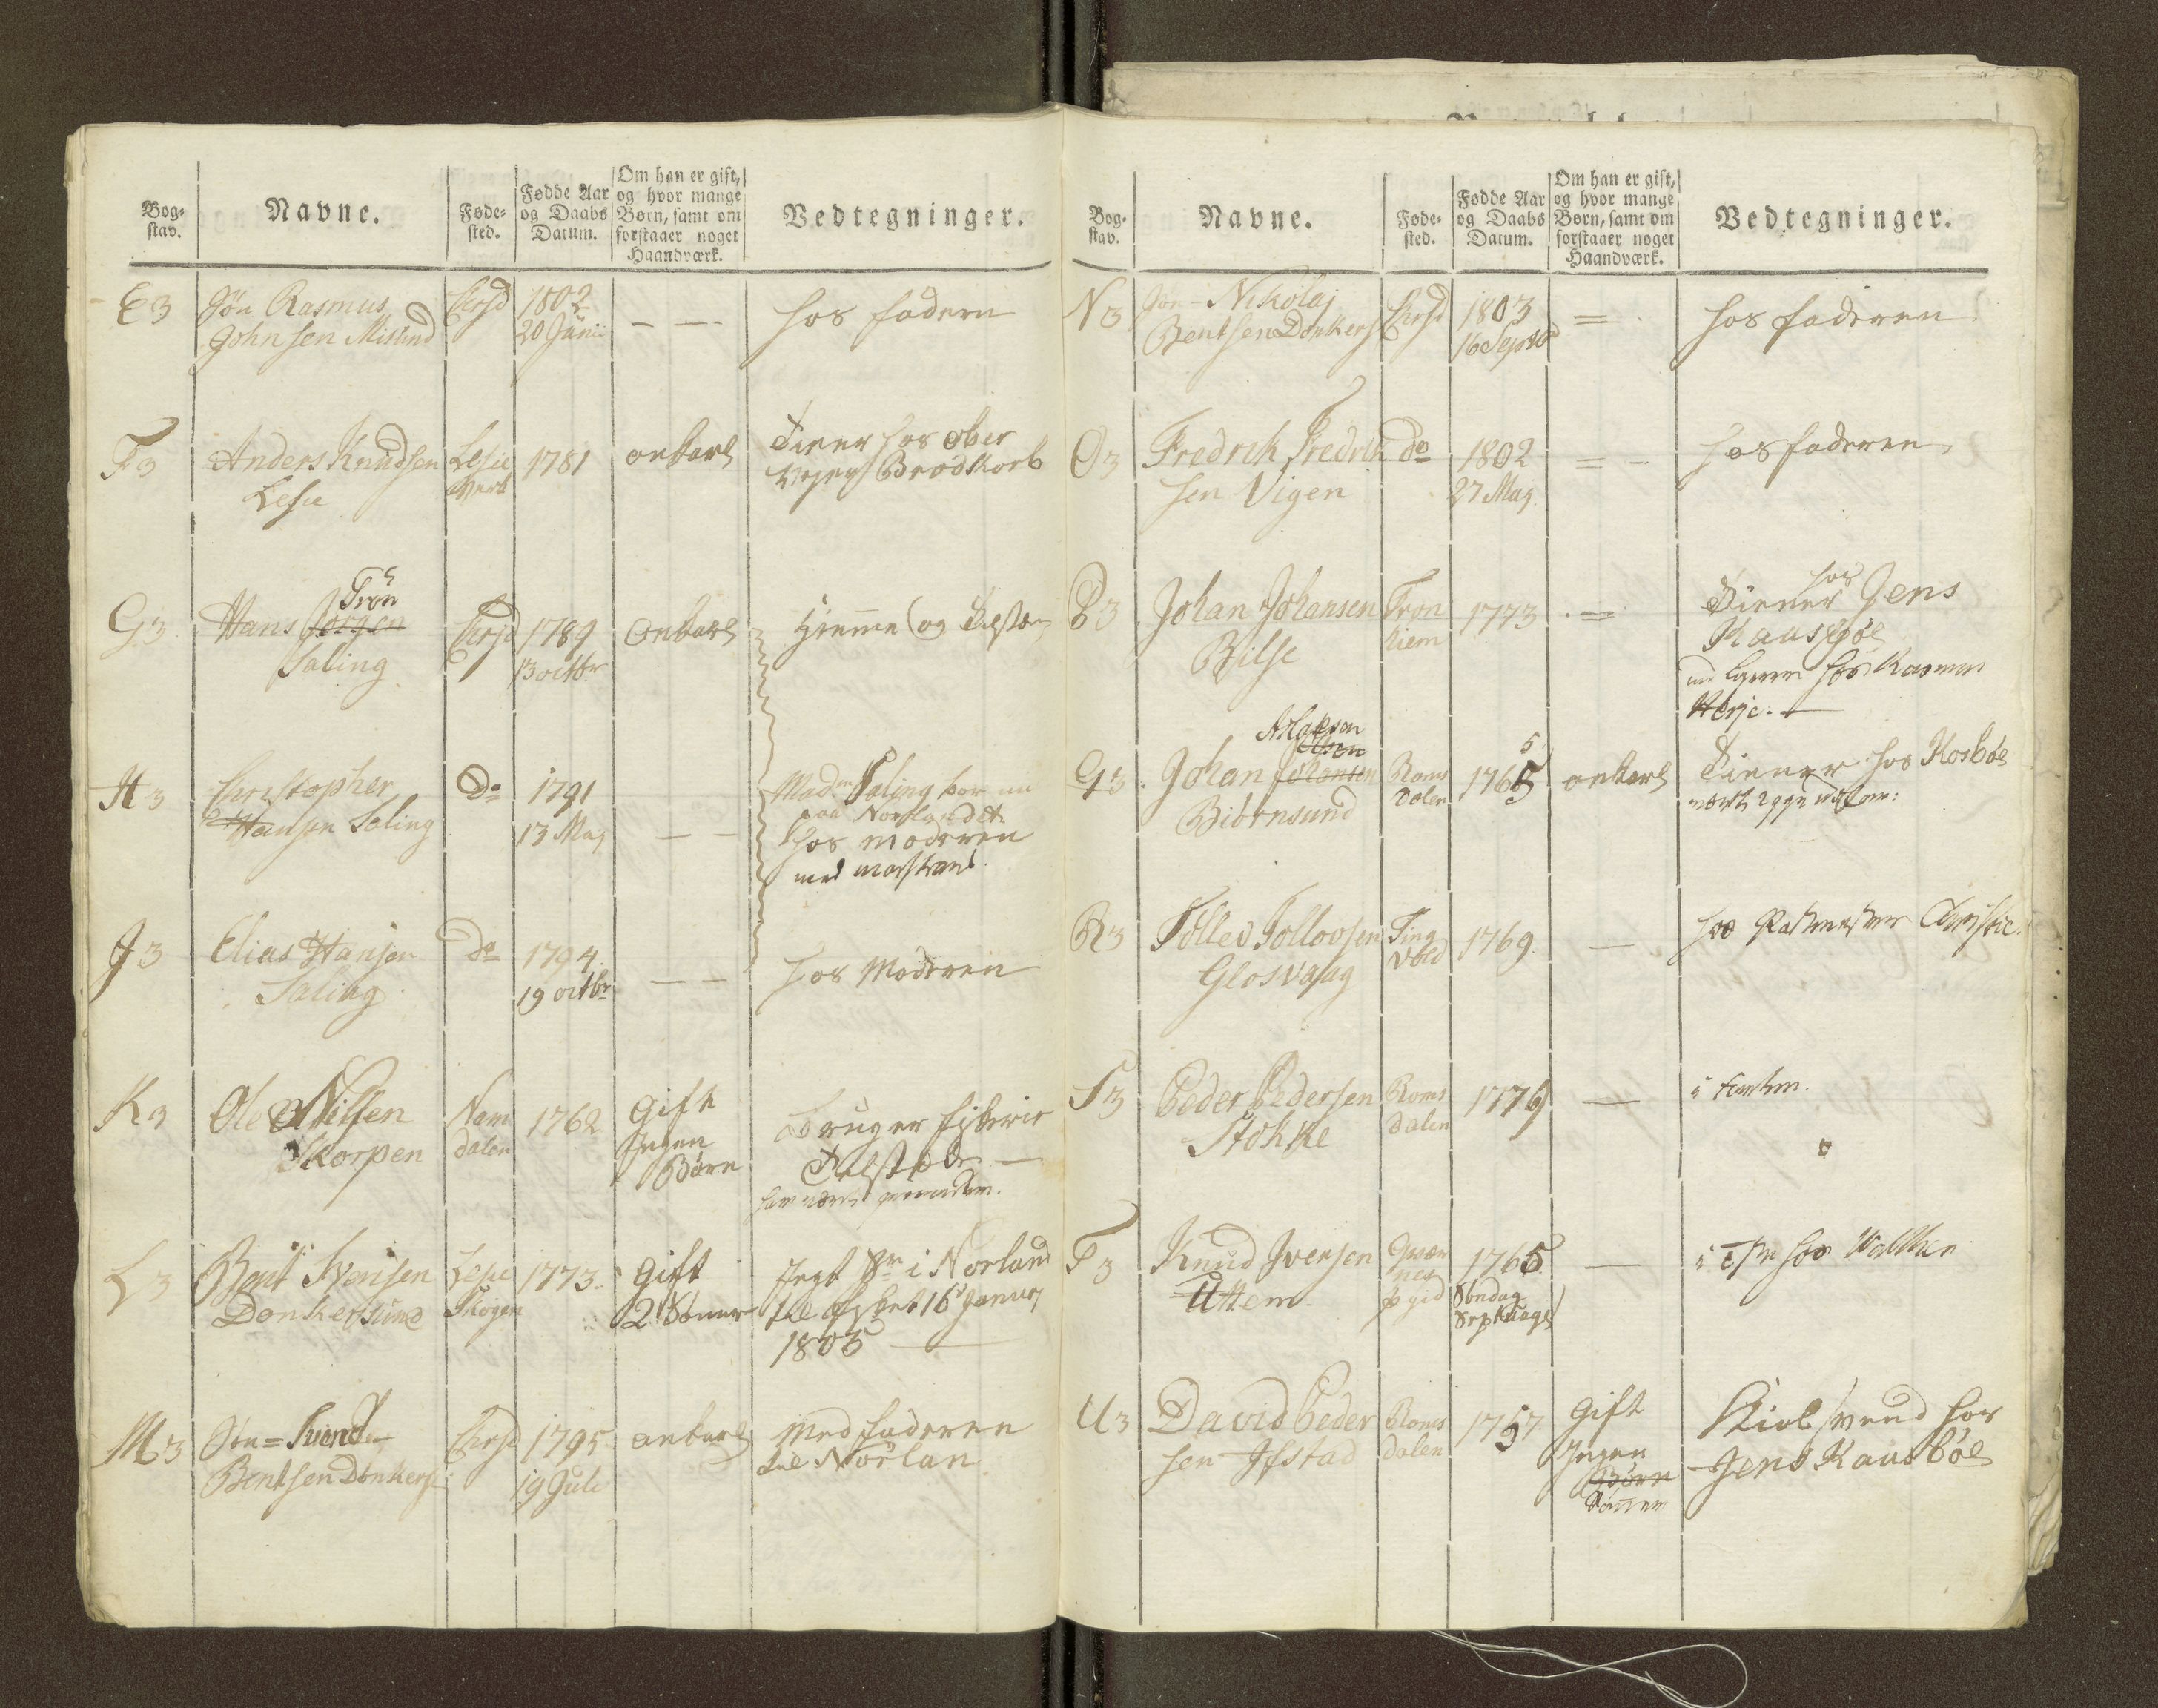 Bog-
stav.
Navne.
Føde-
sted.
Fødde Aar
og Daabs
Datum.
Om han er gift,
og hvor mange
Børn, samt om
forstaaer noget
Haandværk.
Vedtegninger.
E3
Jøn Rasmus
Johnsen Misund
Chrsd
1802
20 Junii
— —
hos fadern
F3
Anders Knudsen
Lesie
Lesie
Werk
1781
onkarl
Tiener hos ober
Brodkorb
G3
Hans Jørgen
Trøn
Saling
Chrsd
1789
13 octbr
onkarl
Hiemme og
H3
Christopher
Hansen Saling
Do
1791
13 Maj
— —
Madm Saling bor nu
paa Norlandet
hos moderen
med
J3
Elias Hansen
Saling
do
1794
19 octbr
— —
hos Moderen
K3
Ole Nilsen
Skorpen
Nam
dalen
1762
Gift
Ingen
Børn
Bruger fiskerie
L3
Bent Svensen
Donkersund
Lesie
Skogen
1773
Gift
2 Sønner
i Norland
16 Januarj
1805
M3
Søn = Svend
Bentsen Donkers
Chrsd
1795
19 Juli
onkarl
Med faderen
til Norlan
Bog-
stav.
Navne.
Føde-
sted.
Fødde Aar
og Daabs
Datum.
Om han er gift,
og hvor mange
Børn, samt om
forstaaer noget
Haandværk.
Vedtegninger.
N3
Søn - Nikolaj
Bentsen Donkers
Chrsd
1803
16 Septbr
=
hos faderen
O3
Fredrik Fredrik
sen Vigen
do
1802
27 Maj
=
hos faderen
P3
Johan Johansen
Bilse
Tron
hiem
1773
=
hos
Tiener Jens
Kausbøl
hos Rasmus
Herje. —
Q3
Aslaksen
Olsen
Johan Johansen
Biørnsund
Roms
dalen
5
1765
onkarl
Tiener hos Kosbøe
R3
Tollev Tollovsen
Glosvaag
Ting
vold
1769
—
hos Christie
S3
Peder Pedersen
Stokke
Roms
dalen
1776
—
T3
Knud Iversen
Uttem
Qvær
nes
p gid
1765
Søndag
—
hos
U3
David Peder
sen Ifstad
Roms
dalen
1757
Gift
Ingen
Børn
Sønner
hos
Jens Kausbøl